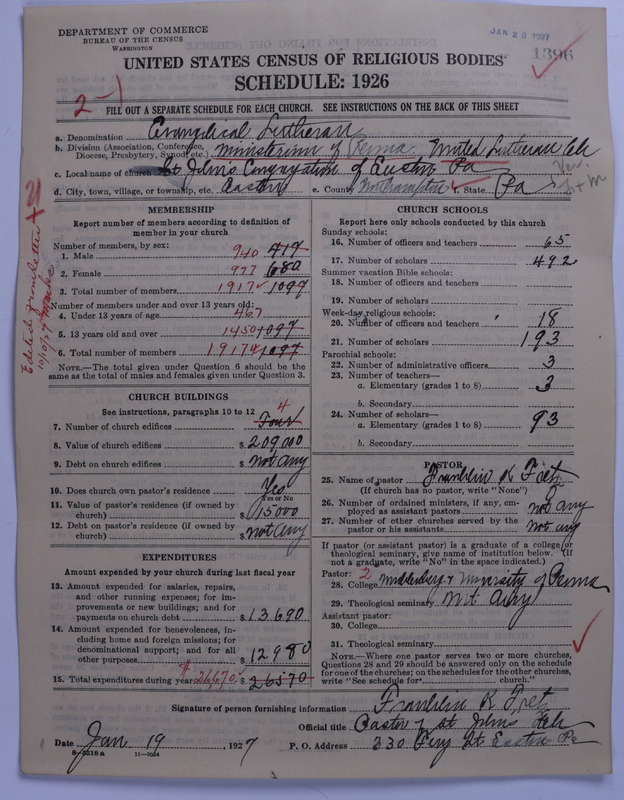 DEPARTMENT OF COMMERCE
BUREAU OF THE CENSUS
WASHINGTON
JAN 20 1927
1396
UNITED STATES CENSUS OF RELIGIOUS BODIES
SCHEDULE: 1926
2-1
FILL OUT A SEPARATE SCHEDULE FOR EACH CHURCH. SEE INSTRUCTIONS ON THE BACK OF THIS SHEET
a. Denomination Evangelical Lutheran
b. Division (Association, Conference, Diocese, Presbytery, Synod, etc.) Ministerium of Penna. United Lutheran Ch
c. Local name of church St John's Congregation of Easton Pa
d. City, town, village, or township, etc. Easton e. County Northampton f. State Pa
Edited from letter
10/10/27
MEMBERSHIP
Report number of members according to definition of member in your church
Number of members, by sex:
1. Male 940 417
2. Female 977 680
3. Total number of members 1917 1097
Number of members under and over 13 years old:
4. Under 13 years of age 467
5. 13 years old and over 1450 1097
6. Total number of members 1917 1097
NOTE.—The total given under Question 6 should be the same as the total of males and females given under Question 3.
CHURCH BUILDINGS
See instructions, paragraphs 10 to 12
7. Number of church edifices Four 4
8. Value of church edifices $ 209,000
9. Debt on church edifices $ Not Any
10. Does church own pastor's residence Yes
Yes or No
11. Value of pastor's residence (if owned by church) $ 15000
12. Debt on pastor's residence (if owned by church) $ Not Any
EXPENDITURES
Amount expended by your church during last fiscal year
13. Amount expended for salaries, repairs, and other running expenses; for improvements or new buildings; and for payments on church debt $ 13,690
14. Amount expended for benevolences, including home and foreign missions; for denominational support; and for all other purposes $ 12980
15. Total expenditures during year $26670 $ 26570
CHURCH SCHOOLS
Report here only schools conducted by this church
Sunday schools:
16. Number of officers and teachers 65
17. Number of scholars 492
Summer vacation Bible schools:
18. Number of officers and teachers
19. Number of scholars
Week-day religious schools:
20. Number of officers and teachers 18
21. Number of scholars 193
Parochial schools:
22. Number of administrative officers 3
23. Number of teachers—
a. Elementary (grades 1 to 8) 3
b. Secondary
24. Number of scholars—
a. Elementary (grades 1 to 8) 93
b. Secondary
PASTOR
25. Name of pastor Franklin K Fretz
(If church has no pastor, write "None")
26. Number of ordained ministers, if any, employed as assistant pastors Not any
27. Number of other churches served by the pastor or his assistants Not any
If pastor (or assistant pastor) is a graduate of a college or theological seminary, give name of institution below. (If not a graduate, write "No" in the space indicated.)
Pastor: 2
28. College Muhlenberg & University of Penna
29. Theological seminary Mt Airy
Assistant pastor:
30. College
31. Theological seminary
NOTE.—Where one pastor serves two or more churches, Questions 28 and 29 should be answered only on the schedule for one of the churches; on the schedules for the other churches, write "See schedule for church."
Signature of person furnishing information Franklin K Fretz
Official title Pastor of St Johns Luth
Date Jan 19, 1927 P. O. Address 330 Ferry St Easton Pa
8-5518a 11-9034